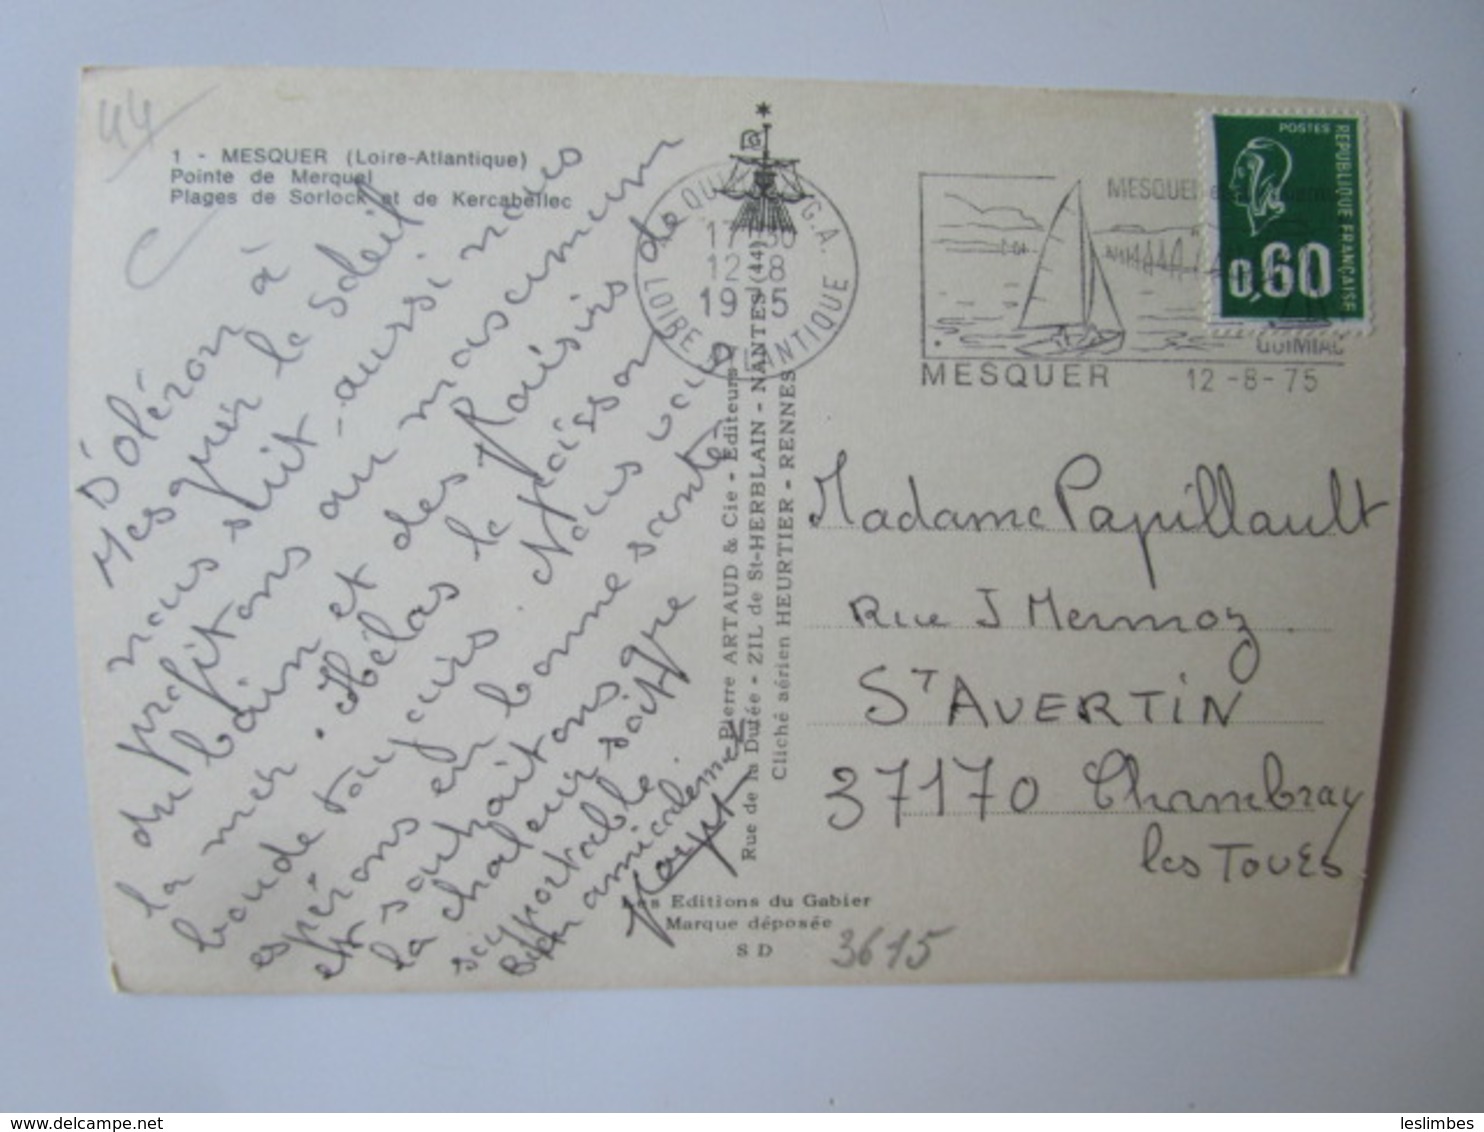 44
1 - MESQUER (Loire-Atlantique)
Pointe de Merquel
Plages de Sorlock et de Kercabellec
D'oléron à
Mesquer le soleil
nous suit - aussi nous
profitons au maximum
du bain et des plaisirs de
la mer. Hélas le poisson
boude toujours. Nous vous
espérons en bonne santé
et souhaitons que
la chaleur soit
supportable.
Bien amicalement
Pierre ARTAUD & Cie - Editeurs
Rue de la Dutée - ZIL de St-HERBLAIN - NANTES (44)
Cliché aérien HEURTIER - RENNES
Les Editions du Gabier
Marque déposée
S D
3615
G.A.
12 - 8
LOIRE ATLANTIQUE
MESQUER
QUIMIAC
MESQUER 12-8-75
POSTES
REPUBLIQUE FRANÇAISE
0,60
Madame Papillault
Rue J Mermoz
ST AVERTIN
37170 Chambray
les TOURS
leslimbes